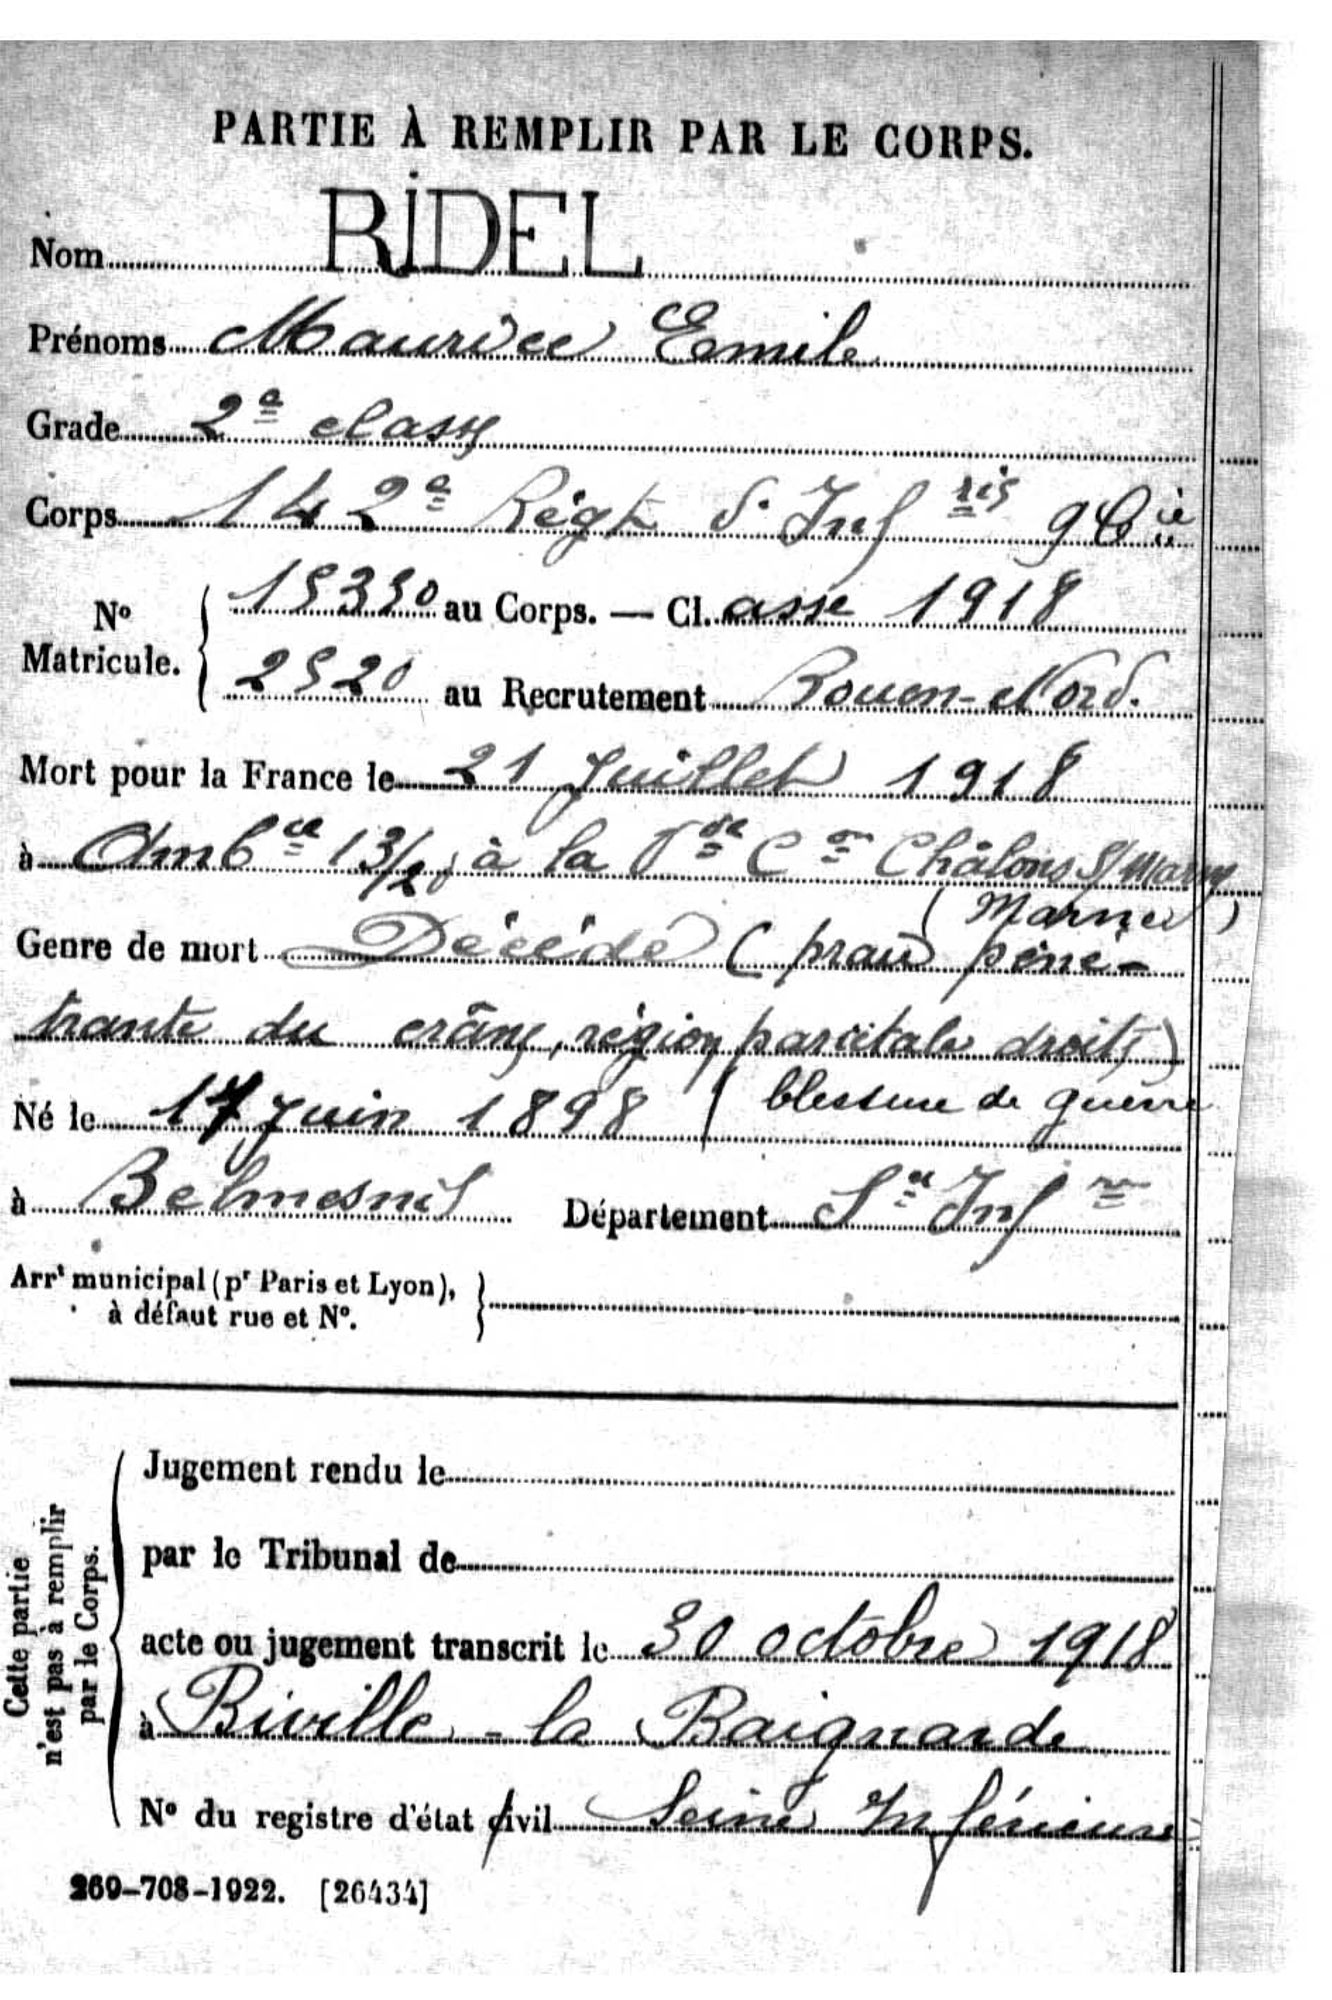 PARTIE À REMPLIR PAR LE CORPS.
Nom RIDEL
Prénoms Maurice Emile
Grade 2e classe
Corps 142e Régt d'Infrie 9 Cie
No Matricule. 15350 au Corps. — Cl. asse 1918
2520 au Recrutement Rouen-Nord.
Mort pour la France le 21 Juillet 1918
à Ambce 13/20 à la Châlons S/Marne
(Marne)
Genre de mort Décédé (praie péné-
trante du crâne, région pariétale droite)
(blessure de guerre
Né le 17 Juin 1898
à Belmesnil Département Se Infre
Arrt municipal (pr Paris et Lyon),
à défaut rue et No.
Cette partie
n'est pas à remplir
par le Corps.
Jugement rendu le
par le Tribunal de
acte ou jugement transcrit le 30 octobre 1918
à Biville-la Baignarde
No du registre d'état civil Seine Inférieure
269-708-1922. [26434]